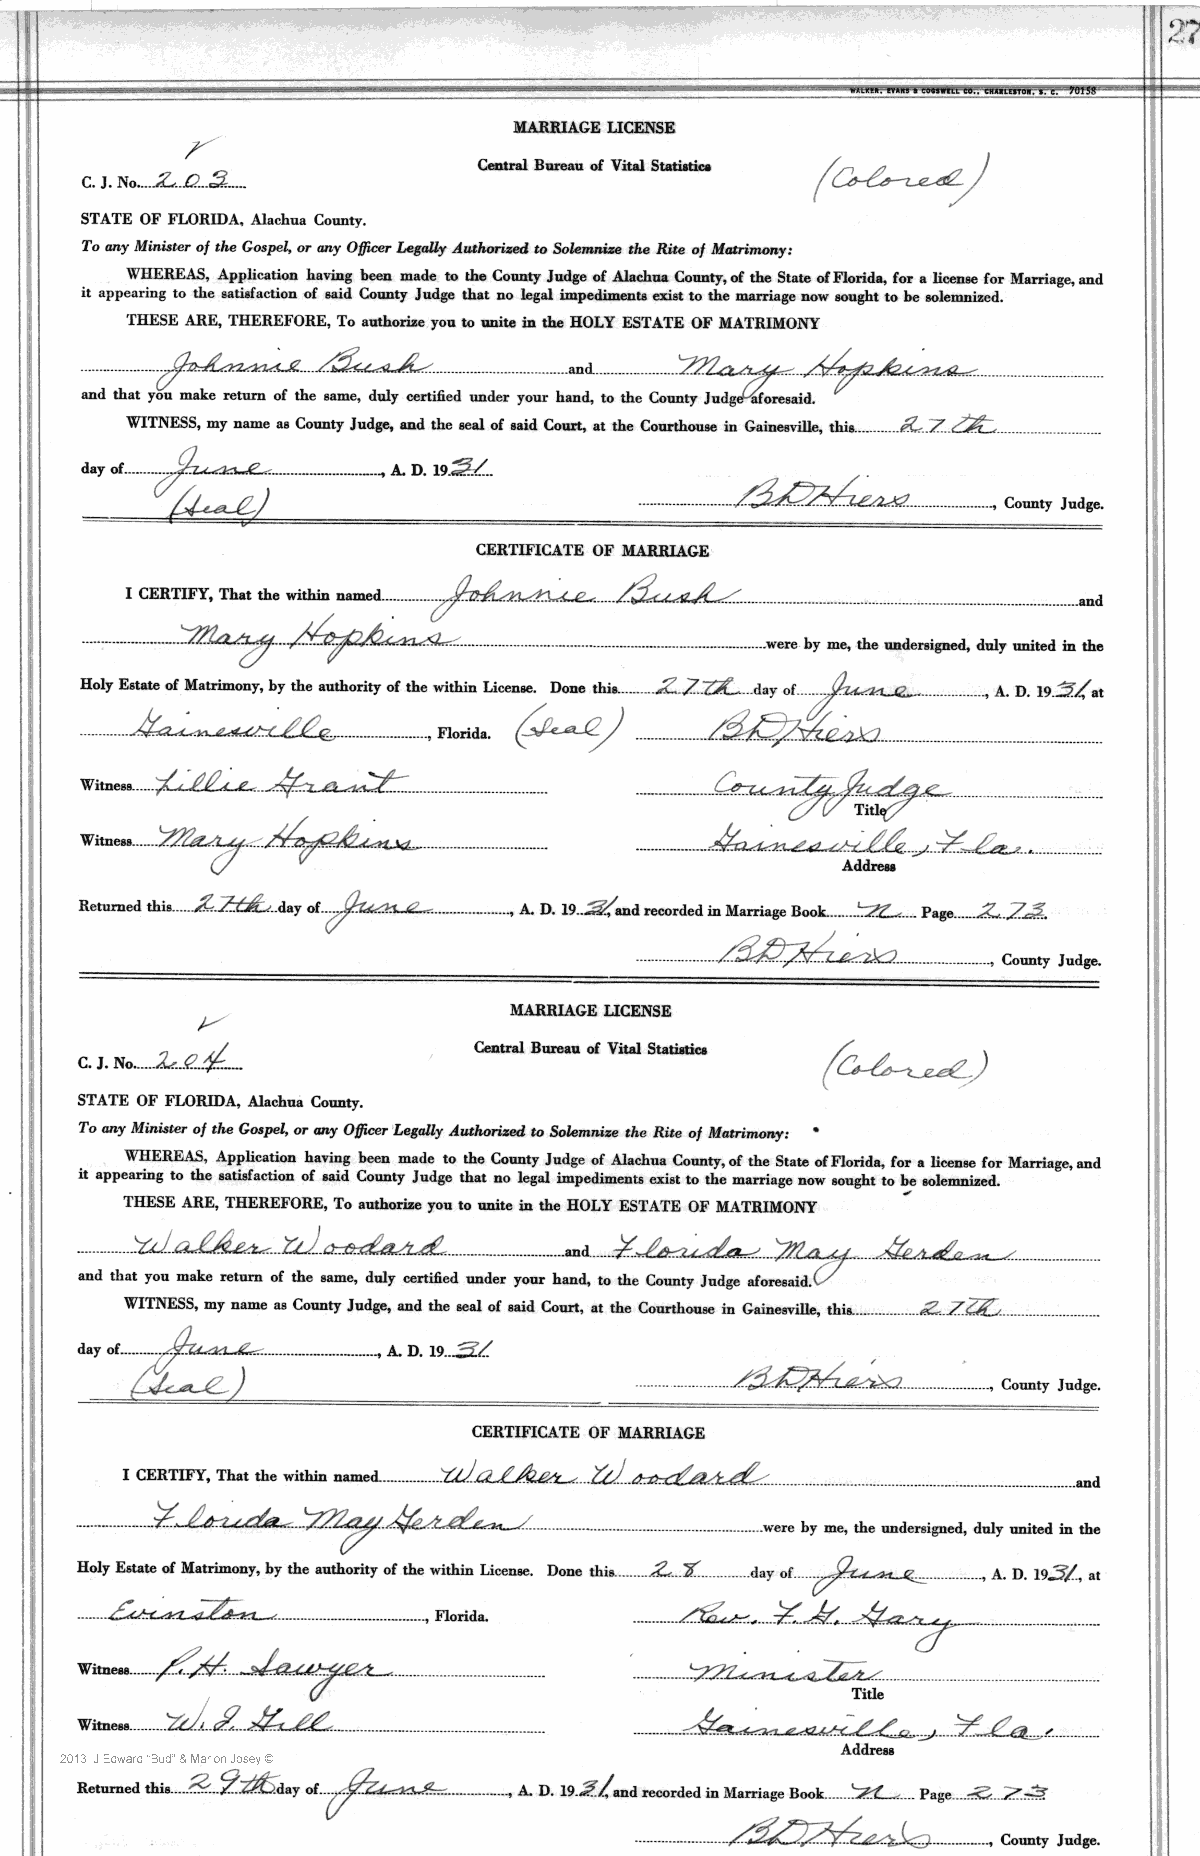 27
WALKER, EVANS & COGSWELL CO., CHARLESTON, S. C. 70158
MARRIAGE LICENSE
Central Bureau of Vital Statistics
(Colored)
C. J. No. 203
STATE OF FLORIDA, Alachua County.
To any Minister of the Gospel, or any Officer Legally Authorized to Solemnize the Rite of Matrimony:
WHEREAS, Application having been made to the County Judge of Alachua County, of the State of Florida, for a license for Marriage, and
it appearing to the satisfaction of said County Judge that no legal impediments exist to the marriage now sought to be solemnized.
THESE ARE, THEREFORE, To authorize you to unite in the HOLY ESTATE OF MATRIMONY
Johnnie Bush and Mary Hopkins
and that you make return of the same, duly certified under your hand, to the County Judge aforesaid.
WITNESS, my name as County Judge, and the seal of said Court, at the Courthouse in Gainesville, this 27th
day of June, A. D. 1931
(Seal) BD Hiers, County Judge.
CERTIFICATE OF MARRIAGE
I CERTIFY, That the within named Johnnie Bush and
Mary Hopkins were by me, the undersigned, duly united in the
Holy Estate of Matrimony, by the authority of the within License. Done this 27th day of June, A. D. 1931, at
Gainesville, Florida. (Seal) BD Hiers
Witness Lillie Grant County Judge
Title
Witness Mary Hopkins Gainesville, Fla.
Address
Returned this 27th day of June, A. D. 1931, and recorded in Marriage Book N Page 273.
BD Hiers, County Judge.
MARRIAGE LICENSE
Central Bureau of Vital Statistics
(Colored)
C. J. No. 204
STATE OF FLORIDA, Alachua County.
To any Minister of the Gospel, or any Officer Legally Authorized to Solemnize the Rite of Matrimony:
WHEREAS, Application having been made to the County Judge of Alachua County, of the State of Florida, for a license for Marriage, and
it appearing to the satisfaction of said County Judge that no legal impediments exist to the marriage now sought to be solemnized.
THESE ARE, THEREFORE, To authorize you to unite in the HOLY ESTATE OF MATRIMONY
Walker Woodard and Florida May Gerden
and that you make return of the same, duly certified under your hand, to the County Judge aforesaid.
WITNESS, my name as County Judge, and the seal of said Court, at the Courthouse in Gainesville, this 27th
day of June, A. D. 1931
(Seal) BD Hiers, County Judge.
CERTIFICATE OF MARRIAGE
I CERTIFY, That the within named Walker Woodard and
Florida May Gerden were by me, the undersigned, duly united in the
Holy Estate of Matrimony, by the authority of the within License. Done this 28 day of June, A. D. 1931, at
Evinston, Florida. Rev. F. G. Gary
Witness P. H. Sawyer Minister
Title
Witness W. J. Gill Gainesville, Fla.
2013 J Edward "Bud" & Marion Josey ©
Address
Returned this 29th day of June, A. D. 1931, and recorded in Marriage Book N Page 273
BD Hiers, County Judge.